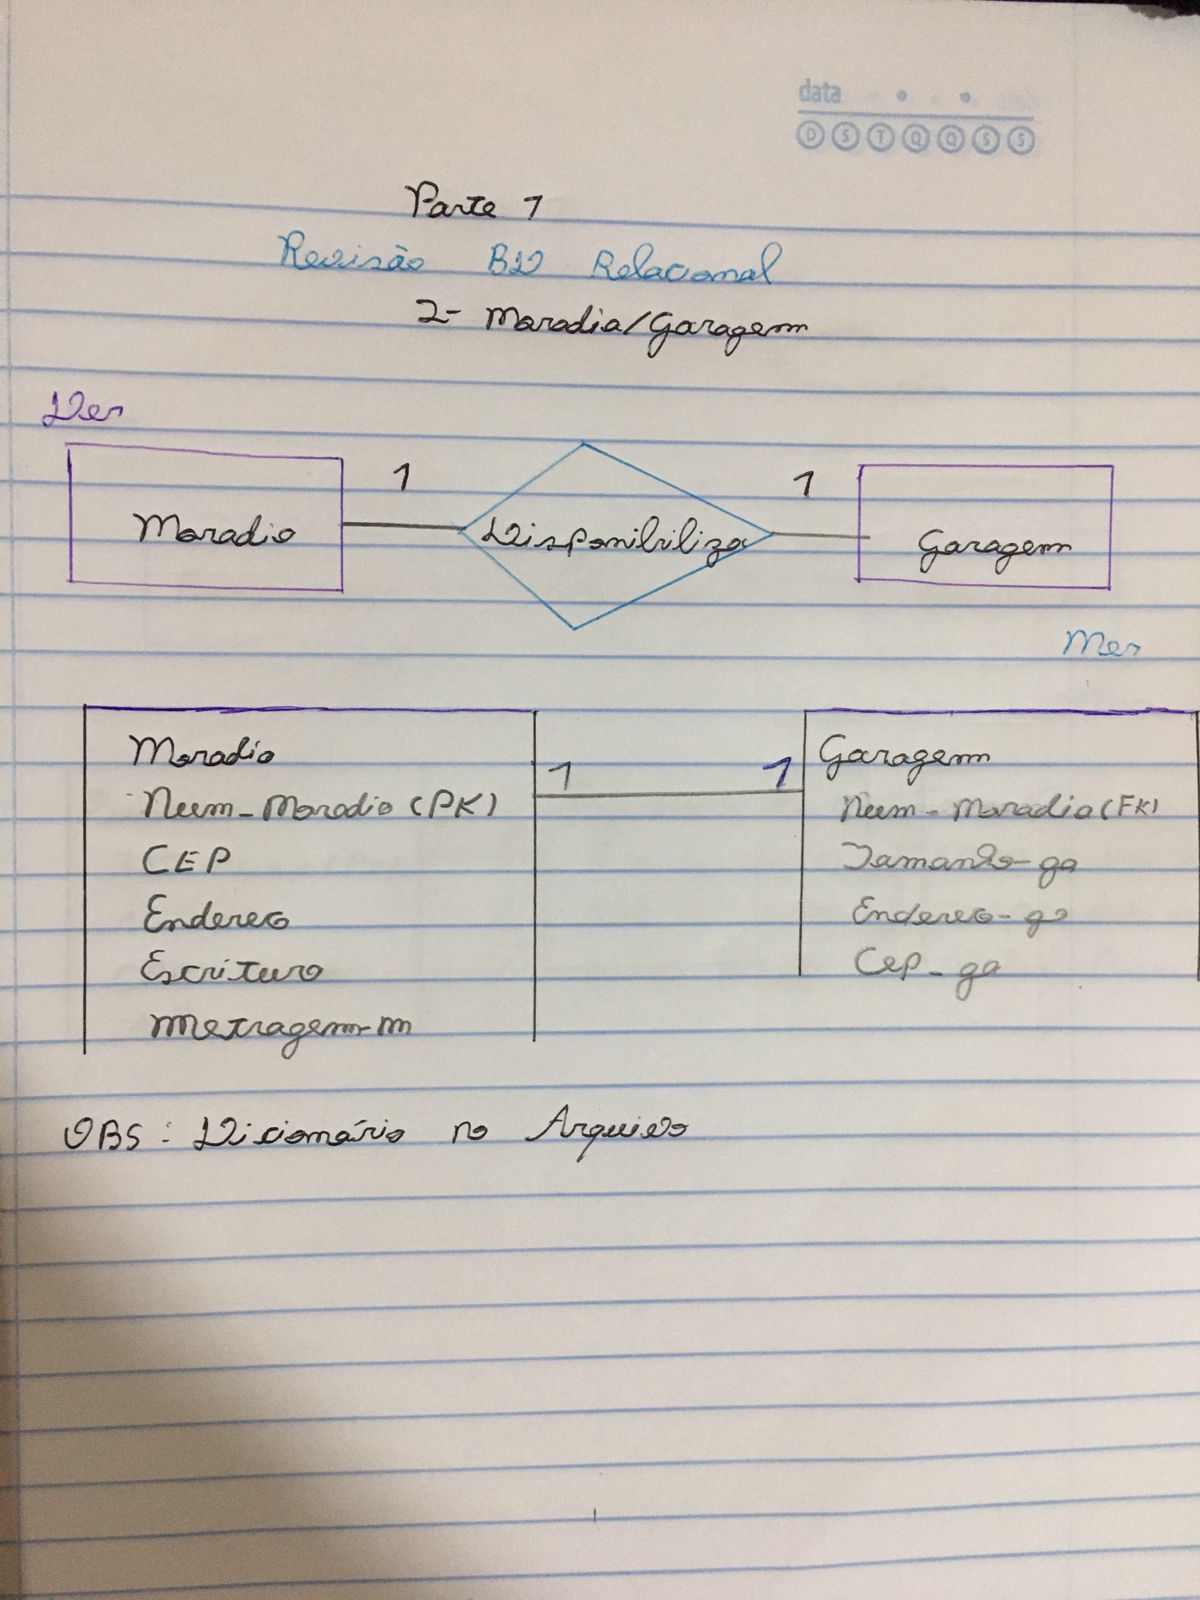 data
D S T Q Q S S
Parte 1
Revisão BD Relacional
2- Moradia/Garagem
Der
Moradia 1 Disponibiliza 1 Garagem
Mer
Moradia
Num_Moradia (PK)
CEP
Endereco
Escritura
Metragem_m
1 1
Garagem
Num_Moradia (FK)
Tamanho_ga
Endereco_ga
Cep_ga
OBS: Dicionário no Arquivo